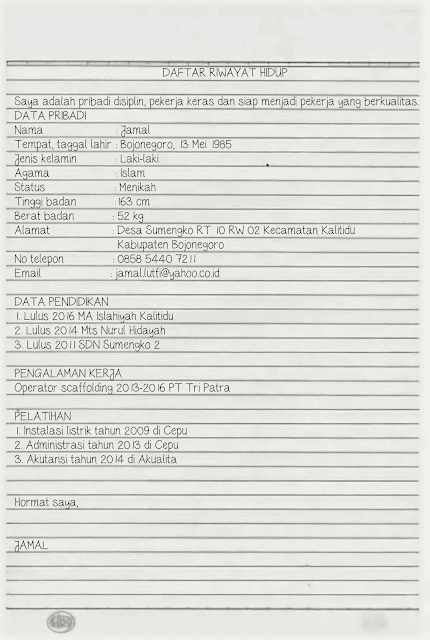 DAFTAR RIWAYAT HIDUP
Saya adalah pribadi disiplin, pekerja keras dan siap menjadi pekerja yang berkualitas.
DATA PRIBADI
Nama : Jamal
Tempat, taggal lahir : Bojonegoro, 13 Mei 1985
Jenis kelamin : Laki-laki
Agama : Islam
Status : Menikah
Tinggi badan : 163 cm
Berat badan : 52 kg
Alamat : Desa Sumengko RT 10 RW 02 Kecamatan Kalitidu
Kabupaten Bojonegoro
No telepon : 0858 5440 7211
Email : jamal.lutfi@yahoo.co.id
DATA PENDIDIKAN
1. Lulus 2016 MA Islahiyah Kalitidu
2. Lulus 2014 Mts Nurul Hidayah
3. Lulus 2011 SDN Sumengko 2
PENGALAMAN KERJA
Operator scaffolding 2013-2016 PT Tri Patra
PELATIHAN
1. Instalasi listrik tahun 2009 di Cepu
2. Administrasi tahun 2013 di Cepu
3. Akutansi tahun 2014 di Akualita
Hormat saya,
JAMAL